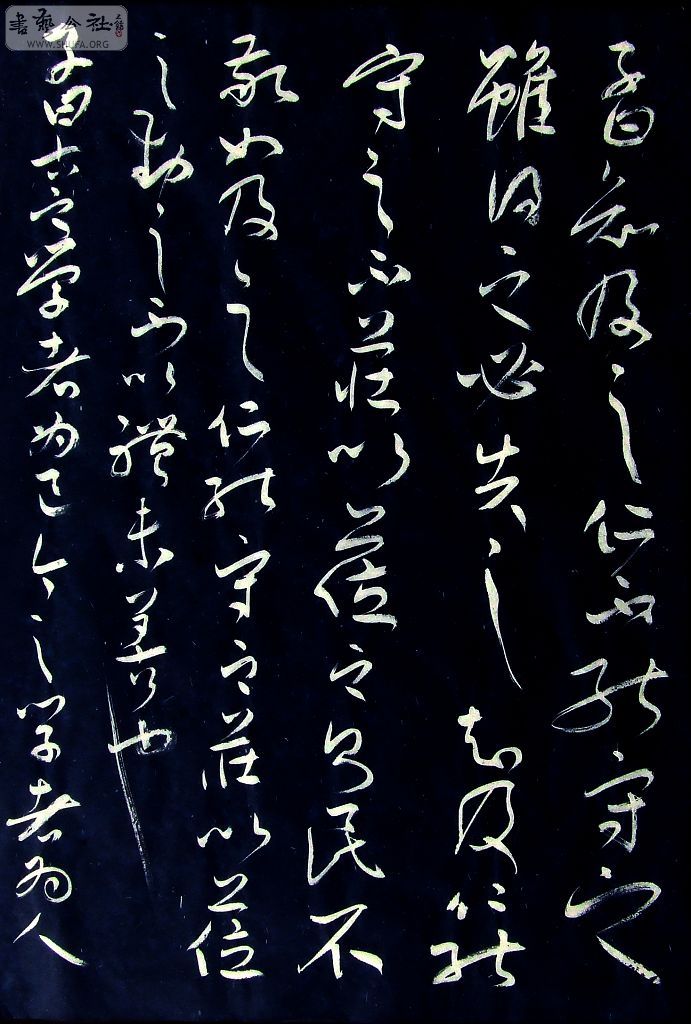 子曰知及之仁不能守之
雖得之必失之知及仁能
守之不莊以蒞之則民不
敬知及之仁能守之莊以蒞
之動之不以禮未善也
子曰古之学者为己今之学者为人
書藝公社
WWW.SHUFA.ORG